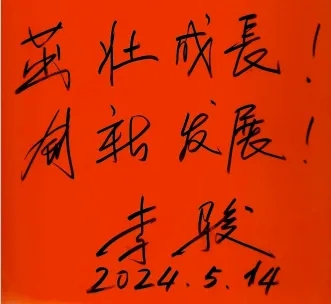 茁壮成長!
创新发展!
李骏
2024.5.14